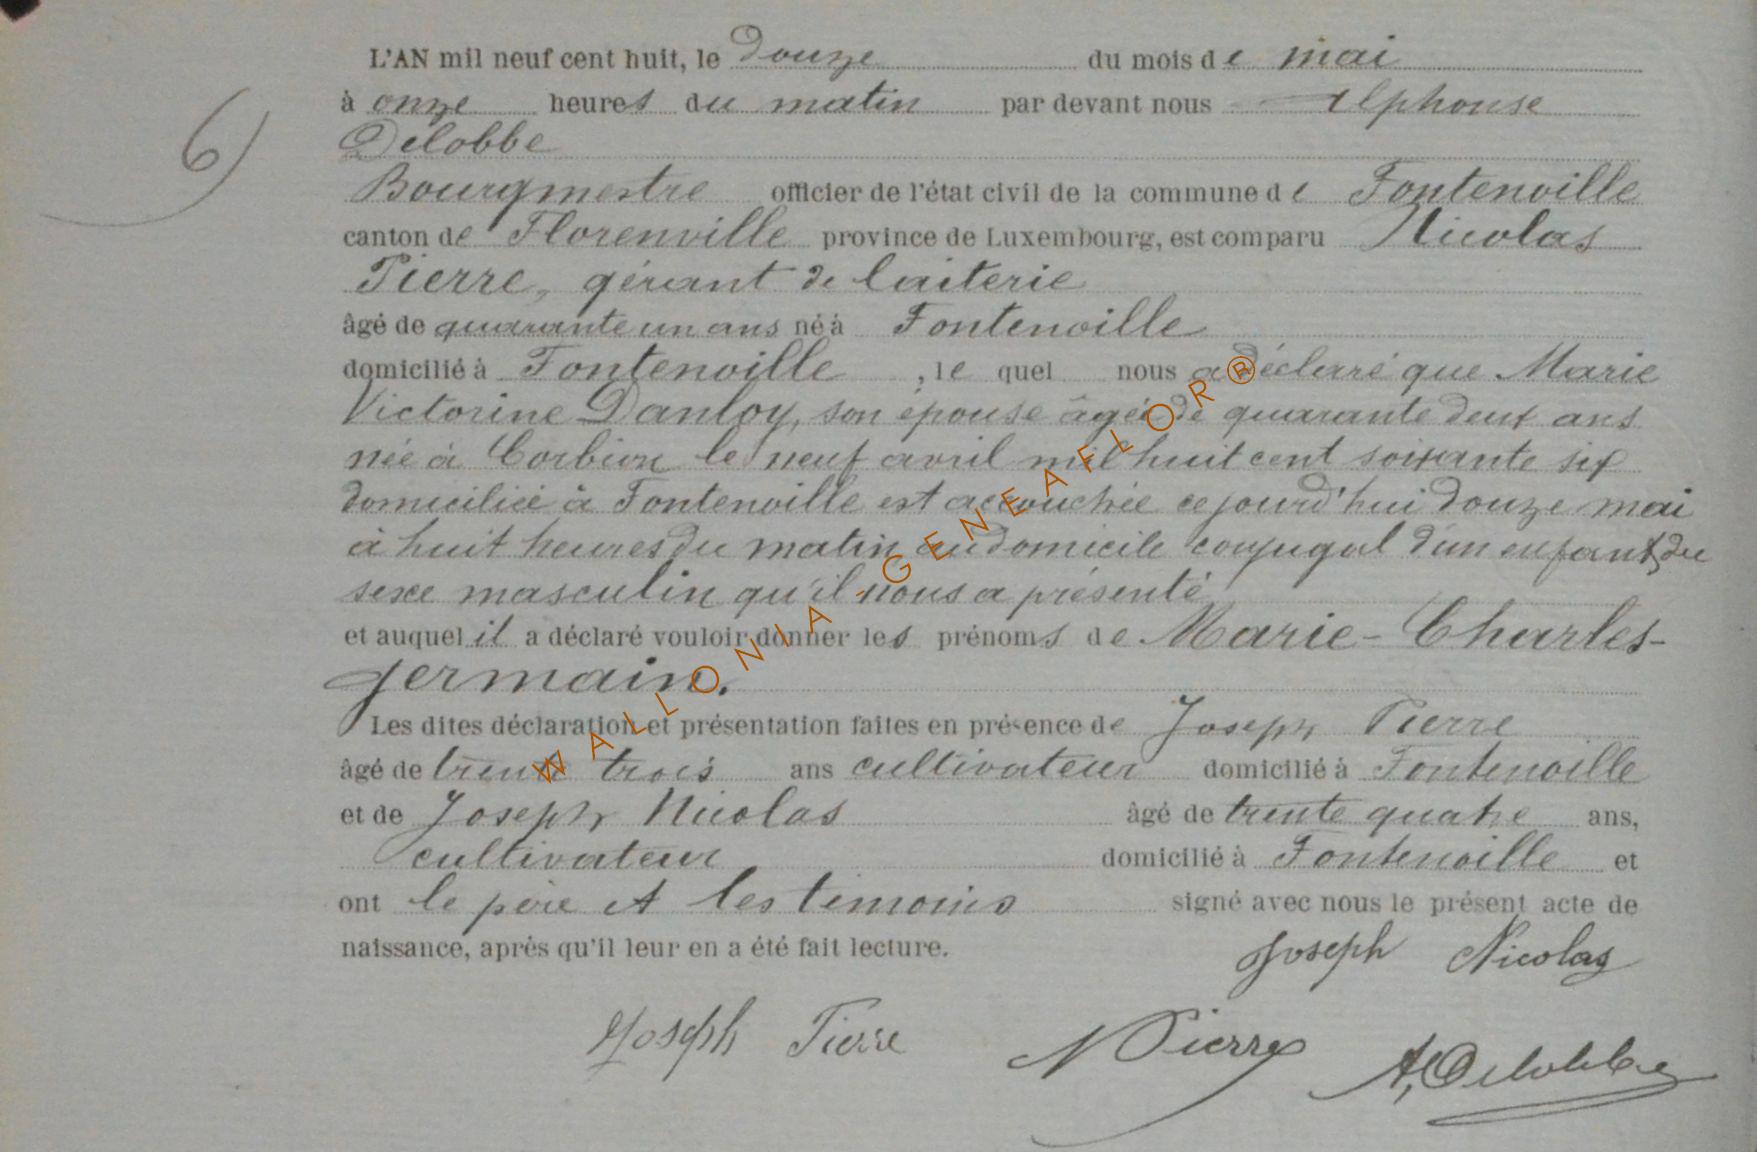 L'AN mil neuf cent huit, le douze du mois de mai
à onze heures du matin par devant nous Alphonse
Delobbe
6)
Bourgmestre officier de l'état civil de la commune de Fontenoille
canton de Florenville province de Luxembourg, est comparu Nicolas
Pierre, gérant de laiterie
âgé de quarante un ans né à Fontenoille
domicilié à Fontenoille, le quel nous a déclaré que Marie
Victorine Danloy, son épouse âgée de quarante deux ans
née à Corbion le neuf avril mil huit cent soixante six
domiciliée à Fontenoille est accouchée cejourd'hui douze mai
à huit heures du matin au domicile conjugal d'un enfant du
sexe masculin qu'il nous a présenté
et auquel il a déclaré vouloir donner les prénoms de Marie-Charles-
germain.
Les dites déclaration et présentation faites en présence de Joseph Pierre
âgé de trente trois ans cultivateur domicilié à Fontenoille
et de Joseph Nicolas âgé de trente quatre ans,
cultivateur domicilié à Fontenoille et
ont le père et les témoins signé avec nous le présent acte de
naissance, après qu'il leur en a été fait lecture.
Joseph Nicolas
Joseph Pierre N Pierre A, Delobbe
WALLONIA - GENEAFLOR®